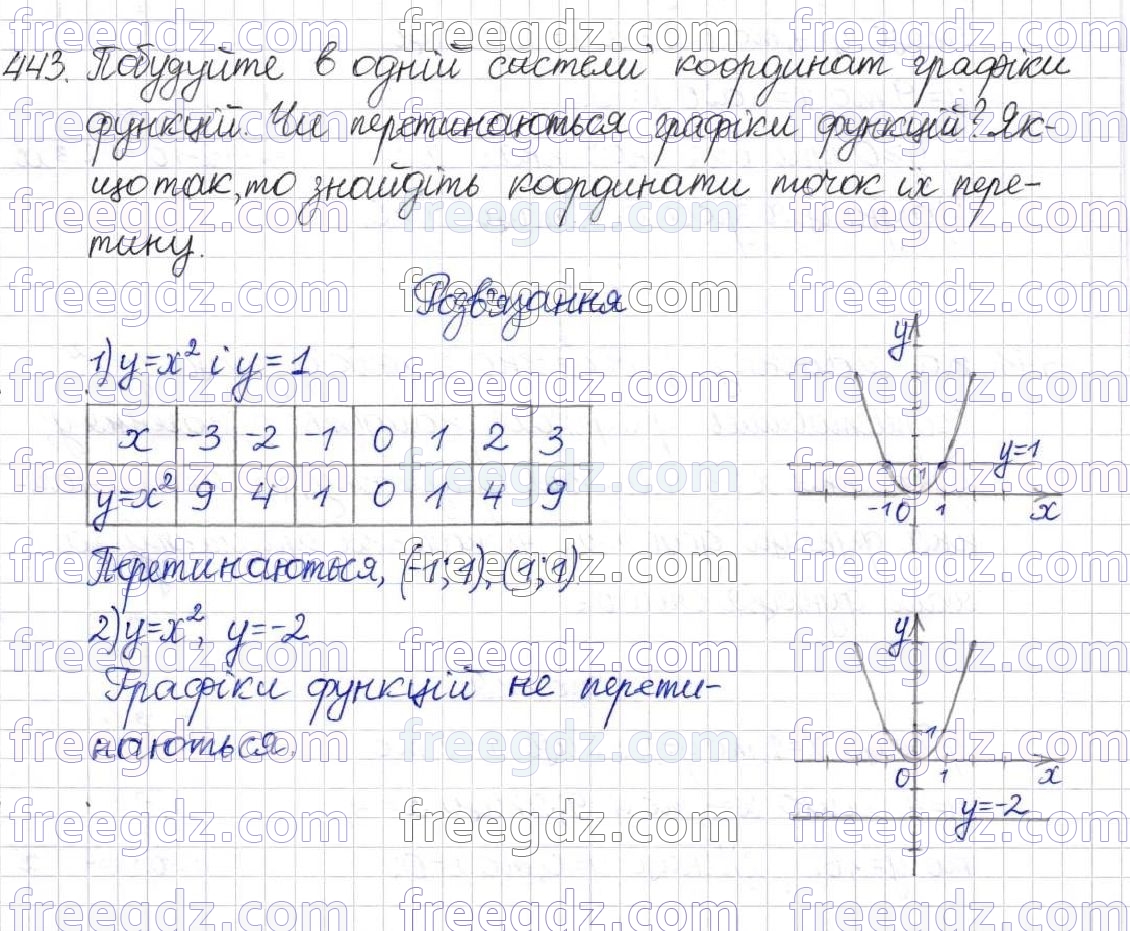 443. Побудуйте в одній системі координат графіки
функцій. Чи перетинаються графіки функцій? Як-
що так, то знайдіть координати точок їх пере-
тину.
Розв'язання
1) y=x² і y=1
x -3 -2 -1 0 1 2 3
y=x² 9 4 1 0 1 4 9
Перетинаються, (-1; 1), (1; 1)
2) y=x², y=-2
Графіки функцій не перети-
наються.
y
y=1
1
-1 0 1 x
y
1
0 1 x
y=-2
freegdz.com